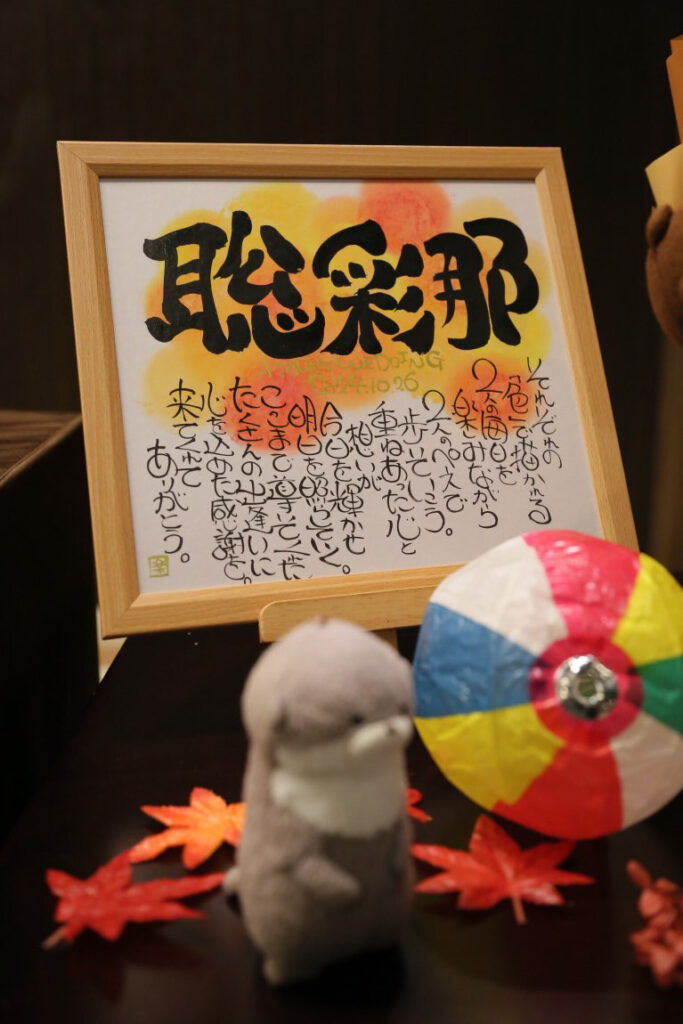 聡彩那
WEDDING
10.26
それぞれの
色で描かれる
2人の毎日を
楽しみながら
2人のペースで
歩いていこう。
重ねあった心と
想いが
今日を輝かせ
明日を照らしていく。
ここまで導いて
たくさんの出逢いに
心を込めた感謝を。
来てくれて
ありがとう。